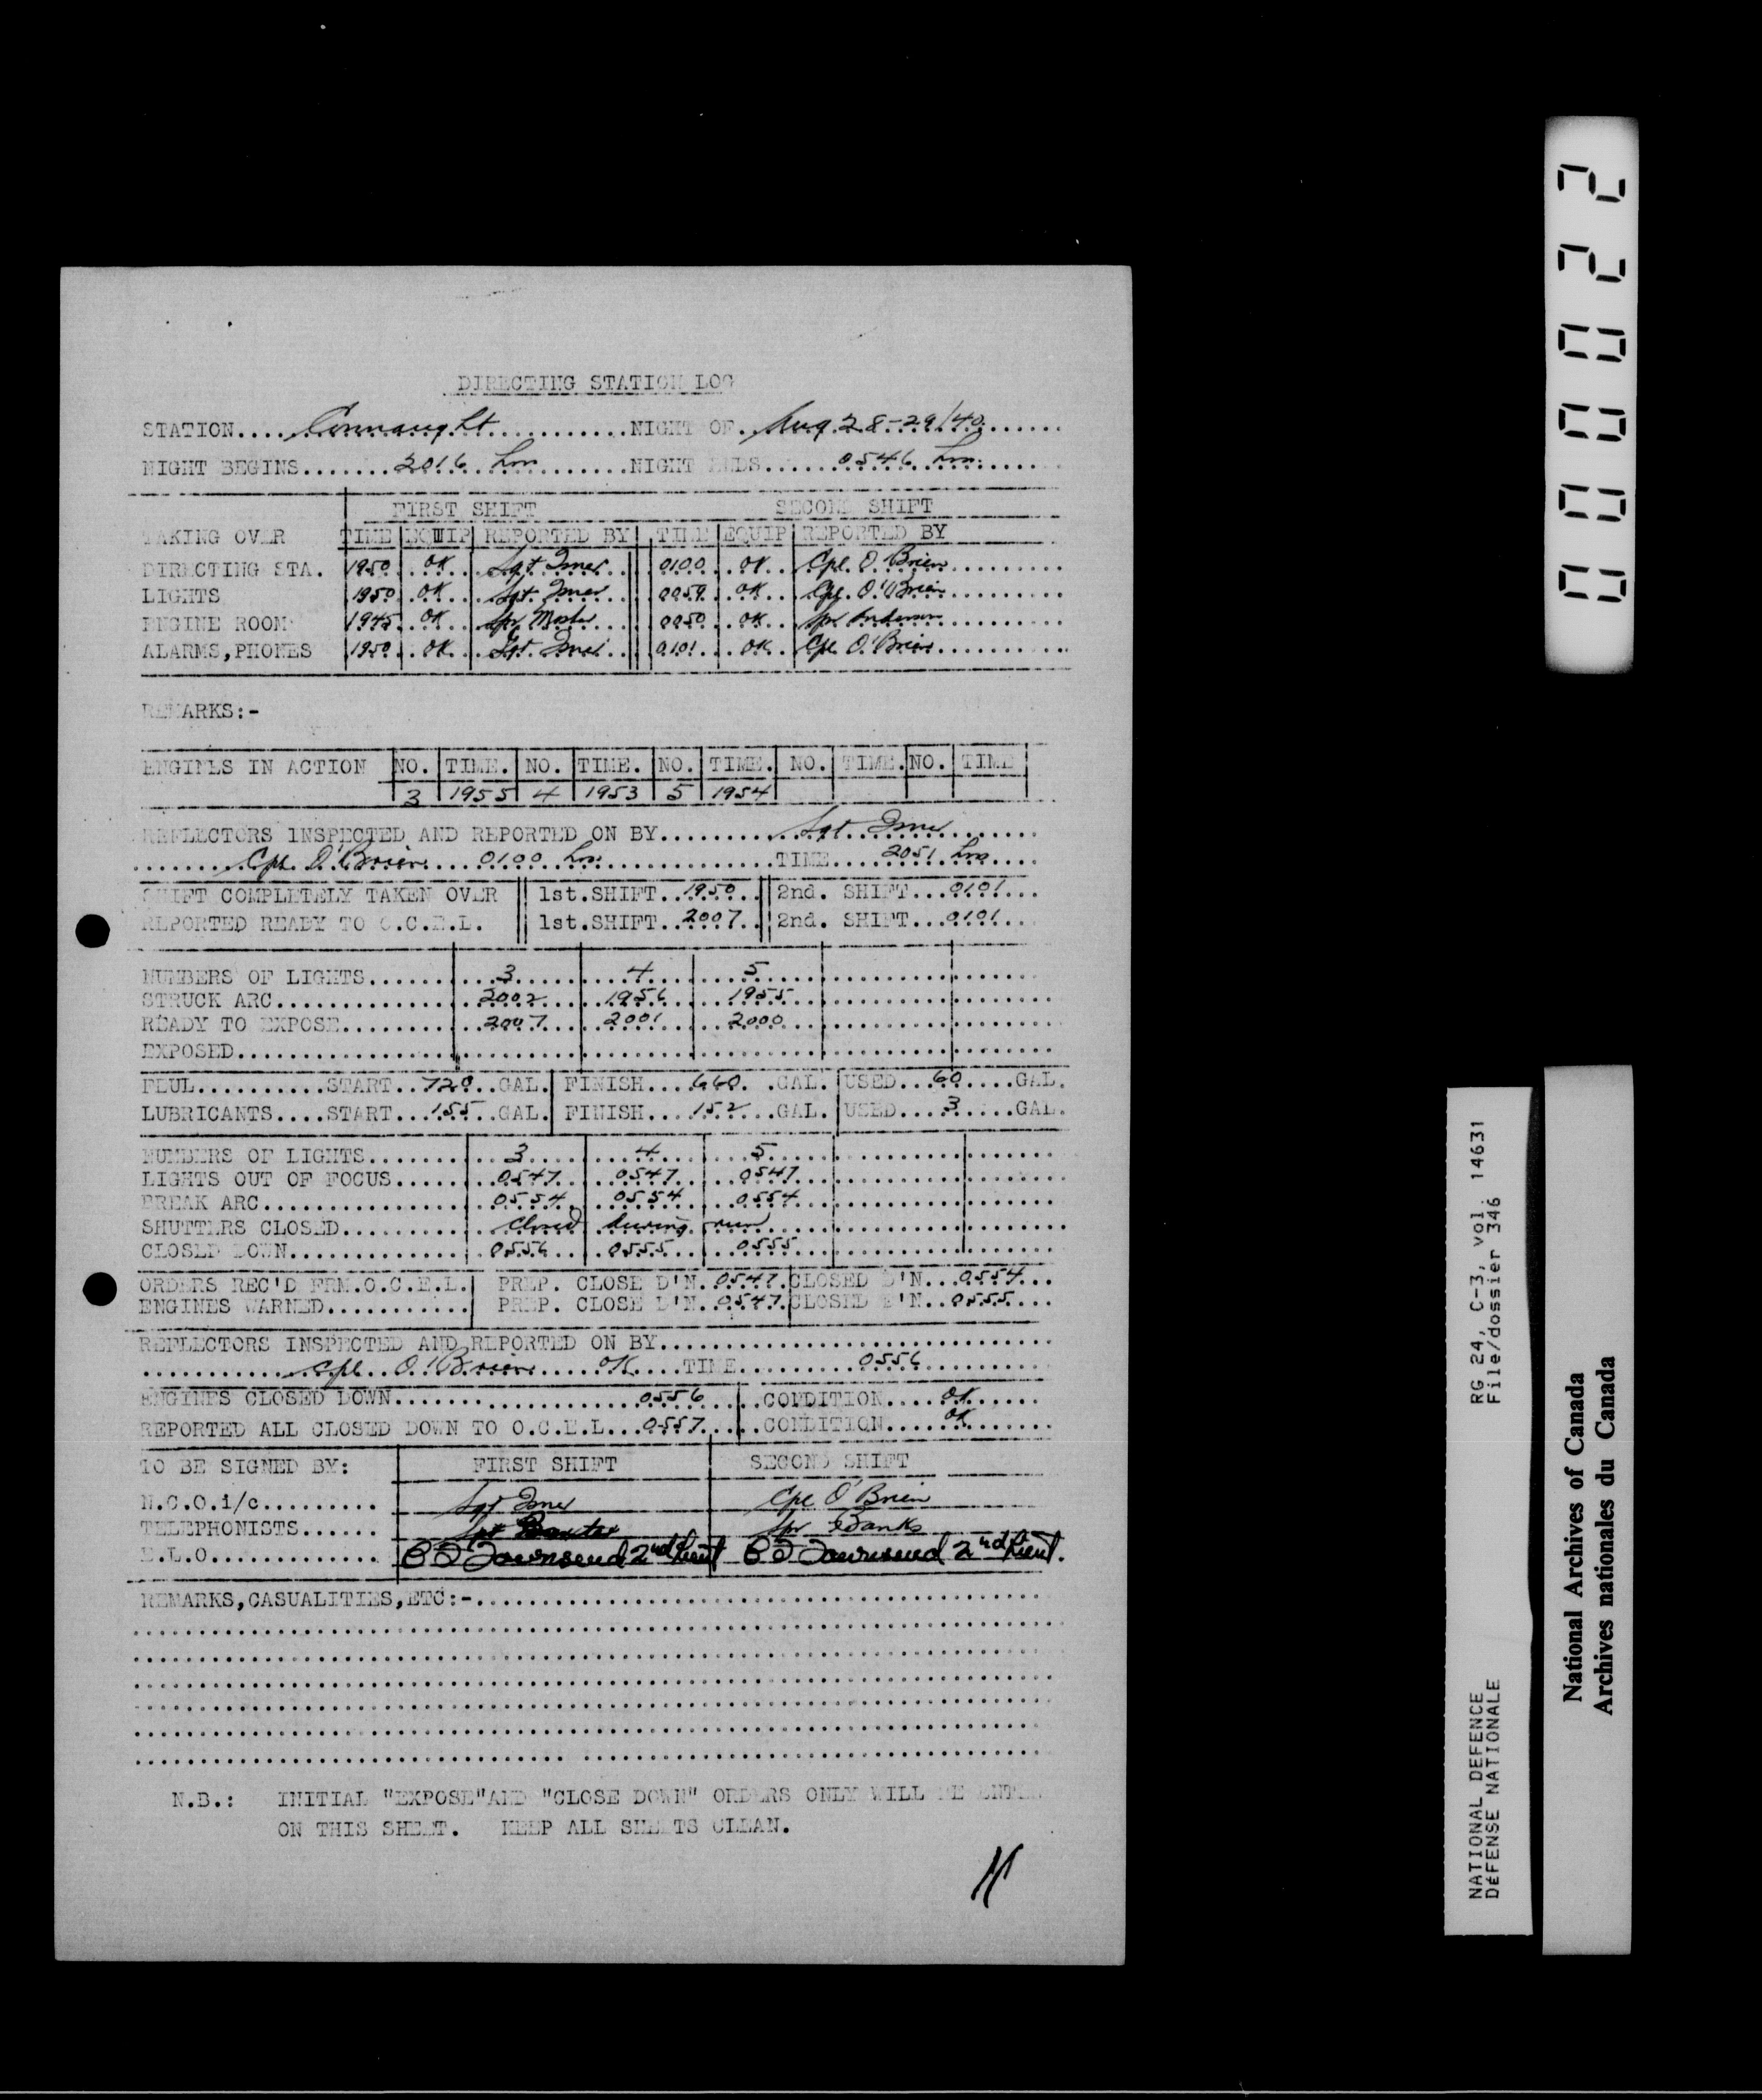 DIRECTING STATION LOG
STATION....Connaught............NIGHT OF...Aug. 28-29/40......
NIGHT BEGINS.......2016 hrs.......NIGHT ENDS......0546 hrs.......
FIRST SHIFT SECOND SHIFT
TAKING OVER TIME EQUIP REPORTED BY TIME EQUIP REPORTED BY
DIRECTING STA. 1950 OK Sgt 0100 OK Cpl. O'Brien
LIGHTS 1950 OK Sgt. 0059 OK Cpl. O'Brien
ENGINE ROOM 1945 OK Spr 0050 OK Spr
ALARMS,PHONES 1950 OK Sgt. 0101 OK Cpl O'Brien
REMARKS:-
ENGINES IN ACTION NO. TIME. NO. TIME. NO. TIME. NO. TIME. NO. TIME
3 1955 4 1953 5 1954
REFLECTORS INSPECTED AND REPORTED ON BY.........Sgt.
Cpl. O'Brien....0100 hrs.............TIME....2051 hrs....
SHIFT COMPLETELY TAKEN OVER 1st.SHIFT..1950.. 2nd. SHIFT...0101...
REPORTED READY TO O.C.E.L. 1st.SHIFT..2007.. 2nd. SHIFT...0101...
NUMBERS OF LIGHTS....... 3 4 5
STRUCK ARC.............. 2002 1956 1955
READY TO EXPOSE......... 2007 2001 2000
EXPOSED.................
FEUL..........START..720..GAL. FINISH....660...GAL. USED...60.....GAL.
LUBRICANTS....START...155..GAL. FINISH....152...GAL. USED....3.....GAL.
NUMBERS OF LIGHTS....... 3 4 5
LIGHTS OUT OF FOCUS..... 0547 0547 0547
BREAK ARC............... 0554 0554 0554
SHUTTERS CLOSED......... Closed during run
CLOSED DOWN............. 0556 0555 0555
ORDERS REC'D FRM.O.C.E.L. PREP. CLOSE D'N.0547.CLOSED D'N...0554...
ENGINES WARNED........... PREP. CLOSE D'N.0547.CLOSED D'N..0555....
REFLECTORS INSPECTED AND REPORTED ON BY..............................
...........Cpl. O'Brien.....OK....TIME.........0556..........
ENGINES CLOSED DOWN...................0556......CONDITION....OK......
REPORTED ALL CLOSED DOWN TO O.C.E.L...0557.....CONDITION.....OK.......
TO BE SIGNED BY: FIRST SHIFT SECOND SHIFT
N.C.O.i/c......... Sgt Cpl O'Brien
TELEPHONISTS...... Spr Baxter Spr Banks
E.L.O............. Townsend 2nd Lieut Townsend 2nd Lieut.
REMARKS,CASUALITIES,ETC:-
N.B.: INITIAL "EXPOSE"AND "CLOSE DOWN" ORDERS ONLY WILL BE
ON THIS SHEET. KEEP ALL SHEETS CLEAN.
000022
RG 24, C-3, vol. 14631
File/dossier 346
NATIONAL DEFENCE
DÉFENSE NATIONALE
National Archives of Canada
Archives nationales du Canada